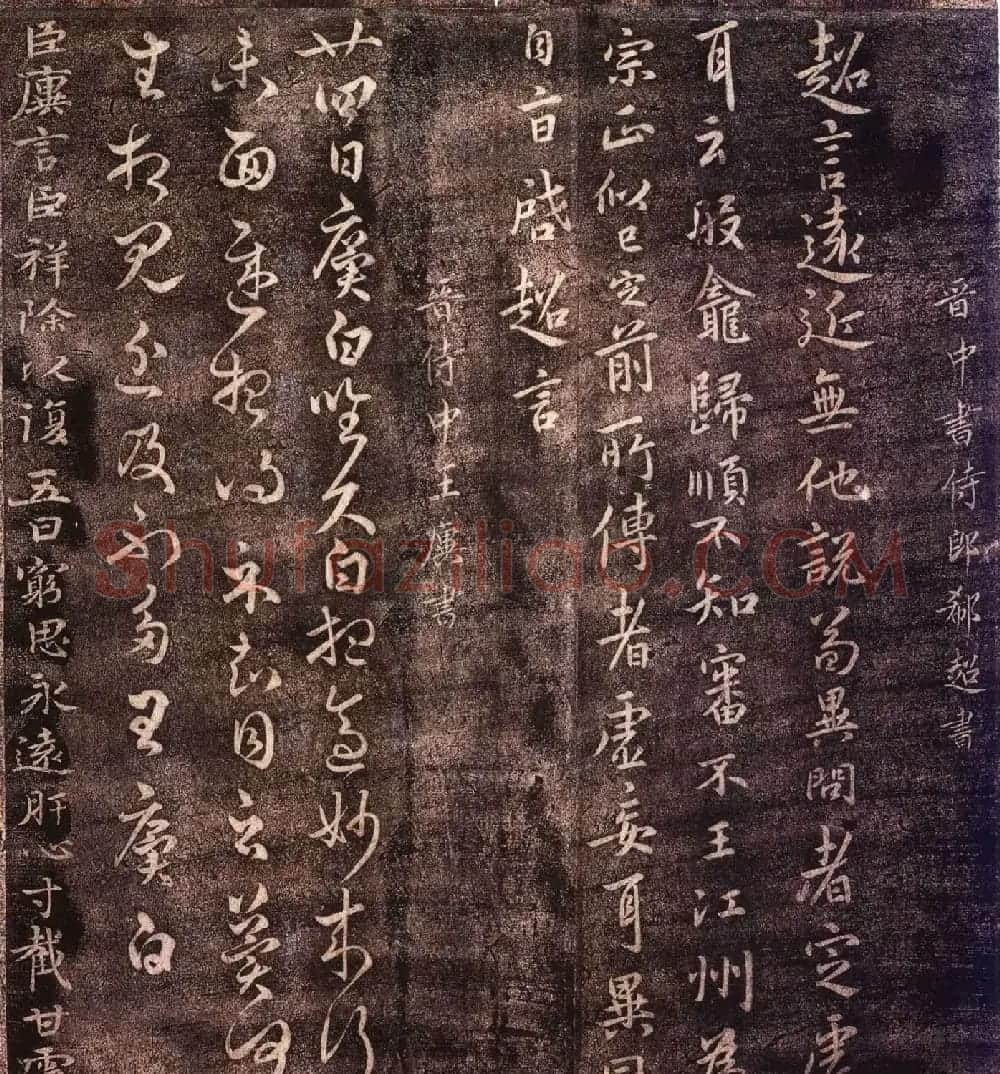 晉中書侍郎郗超書
超言遠近無他說異問者定虛
耳云殷龕歸順不知審不王江州為
宗正似已定前所傳者虛妄耳異同
自啟超言
晉侍中王廙書
廿四日廙白昨久白想妙
未面遲想
生相見近及不多王廙白
臣廙言臣祥除以復五日窮思永遠肝心寸截甘雪
Shufaziliao.COM